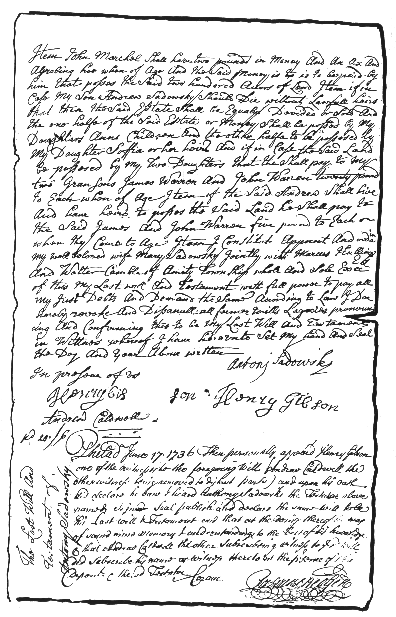 Item John Marchel Shall have two pound in Money And An Ax And
A grubing how when of Age And the Said Money is to be paid by
him that poses the Said two hundred Acurs of Land Item if in
Case My Son Andrew Sadowsky Should Die without Lawfull heirs
that then the Said Estate Shall be Equally Devided
the one halfe of the Said Estate or Money Shall be posesed by My
Daughters Anns Children And the other halfe to be posesed by
My Daughter Sofia or her heirs And if in Case the Said Land
be posesed by My two Daughters that the Shall pay to My
two Gran Sons James Warren And John Warren twenty pound
to Each when of Age Item if the Said Andrew Shall live
And have heirs to poses the Said Land he Shall pay to
the Said James And John Warren five pound to Each or
when they Come to Age Item I Constitut Apoynt And
my well beloved wife Mary Sadowsky Joyntly with Marcus
And Walter Campbell Amity township whole And Sole
of this My Last will And Testament with full power to pay all
my Just Debts And Demands the Same Acording to Law I Doe
hereby revoke And Disanull all former wills Legacies
And Confirming this to be My Last Will And Testament
in Wittness whereof I have hereunto Set My hand And Seal
the Day And Year Above written
Antony Sadowsky
In presence of us
Henry Gibson
Andrew Caldwell
Philad June 17. 1736 Then personally appeared Henry Gibson
one of the witnesses to the foregoing will (Andrew Caldwell the
other witness being removed to distant parts) and upon his oath
did declare he saw & heard Anthony Sadowski the Testator above
named Sign Seal publish and declare the same to be
his Last will & Testament and that at the doing thereof he was
of sound mind memory & understanding to the best of his knowledge
that Andrew Caldwell the other Subscribing witness
did Subscribe his name as witness thereto in the presence of
Deponent & the sd Testator
The Last Will And
Testament of
Antony Sadowsky